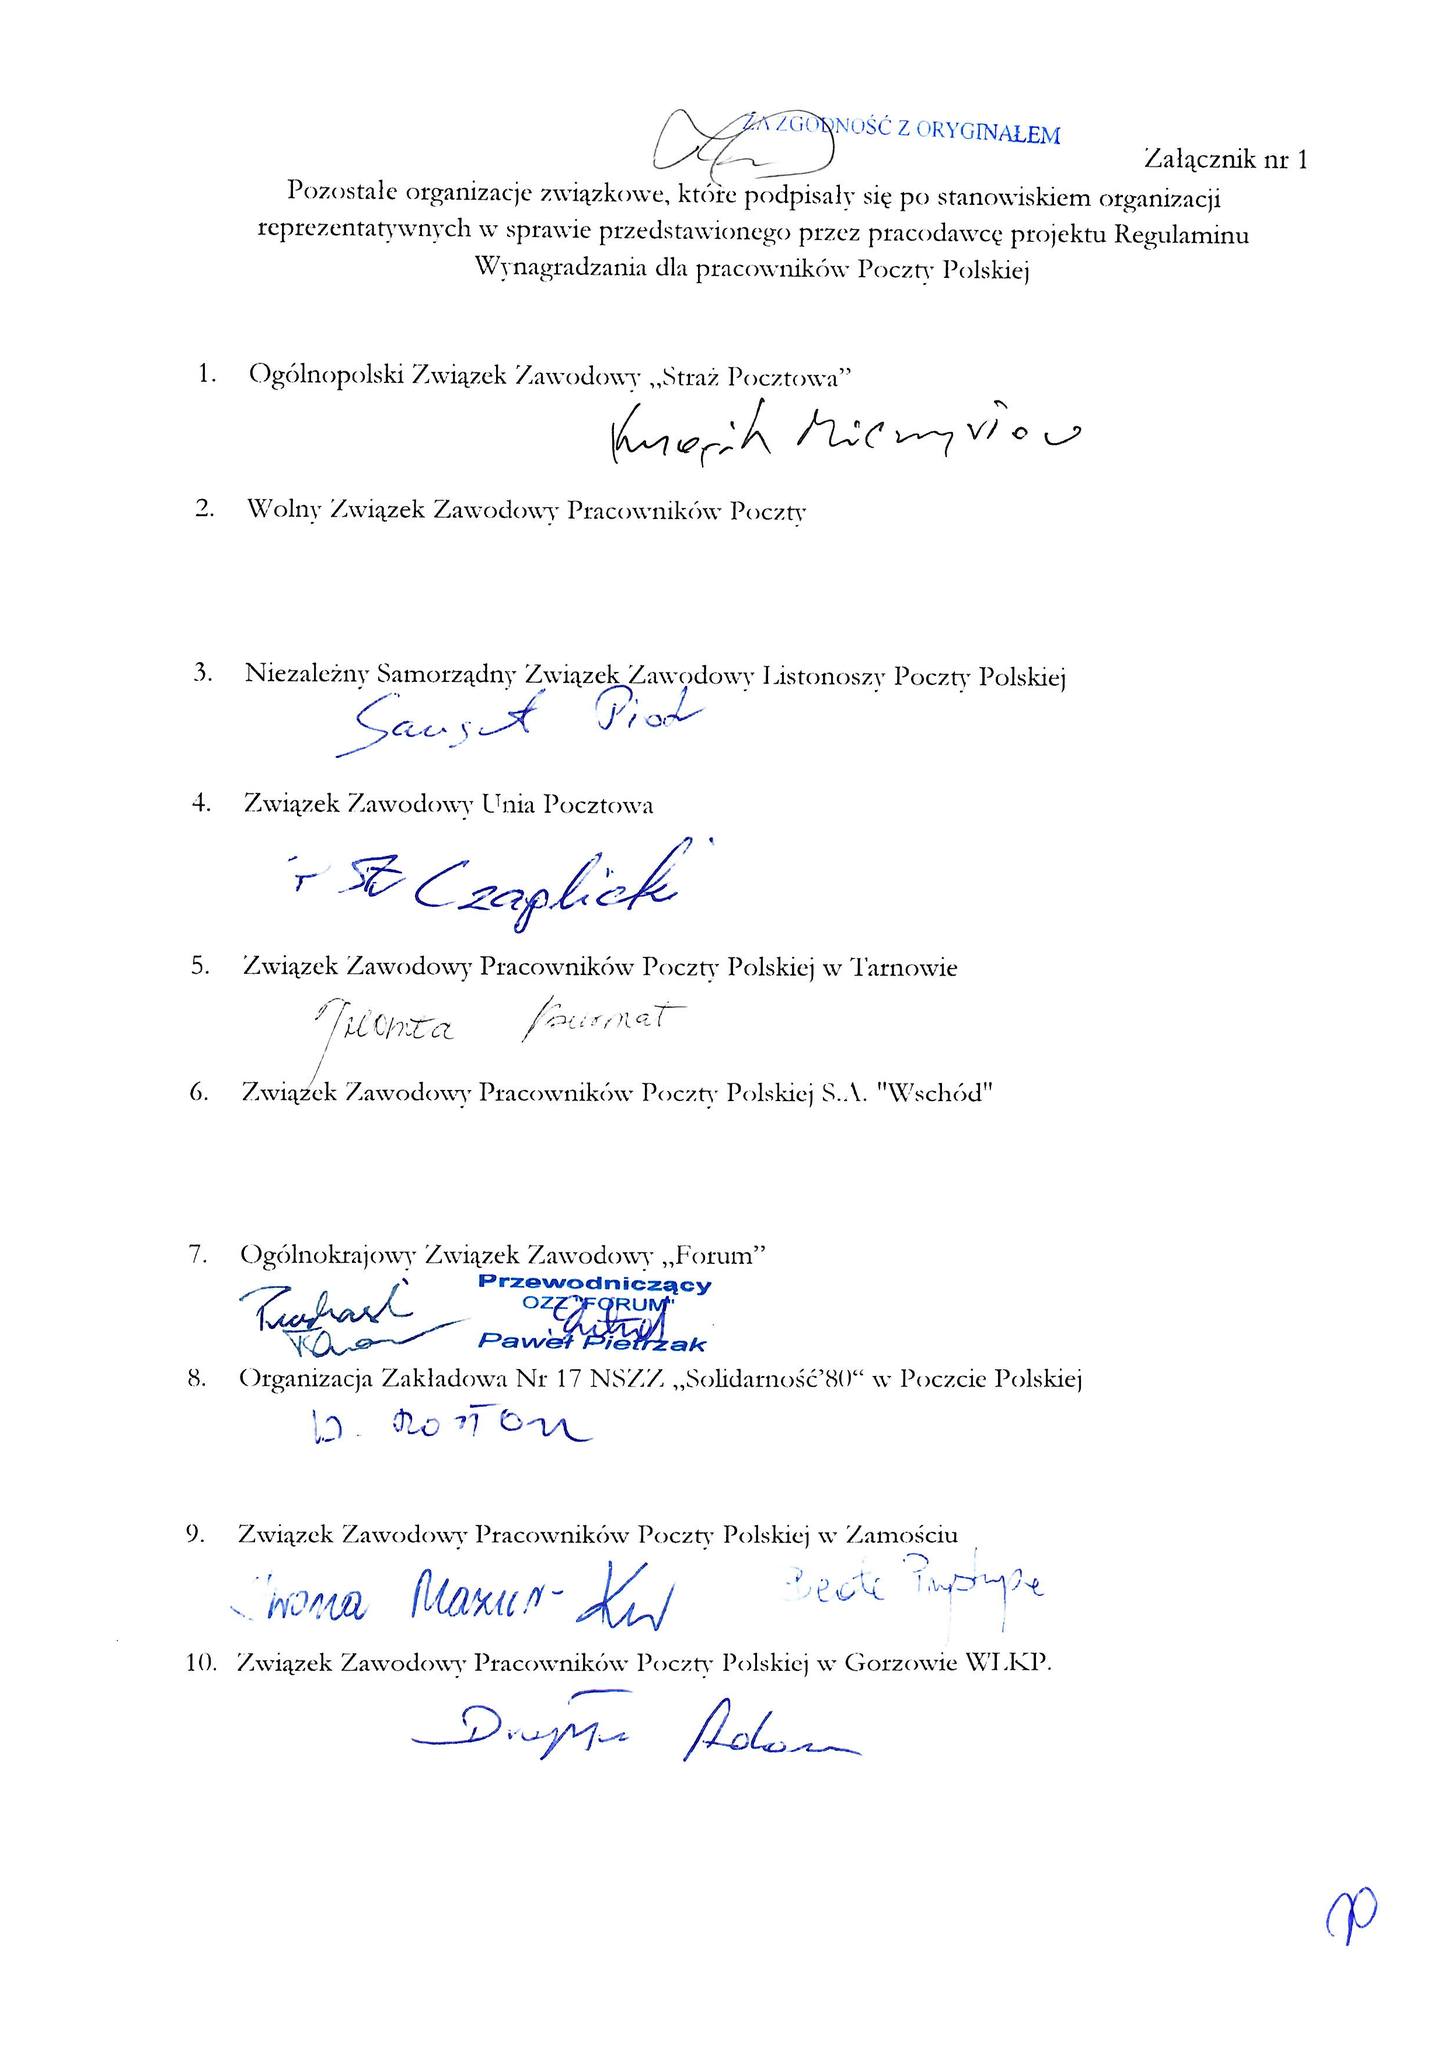 ZA ZGODNOŚĆ Z ORYGINAŁEM
Załącznik nr 1
Pozostałe organizacje związkowe, które podpisały się po stanowiskiem organizacji
reprezentatywnych w sprawie przedstawionego przez pracodawcę projektu Regulaminu
Wynagradzania dla pracowników Poczty Polskiej
1. Ogólnopolski Związek Zawodowy „Straż Pocztowa”
2. Wolny Związek Zawodowy Pracowników Poczty
3. Niezależny Samorządny Związek Zawodowy Listonoszy Poczty Polskiej
Piotr
4. Związek Zawodowy Unia Pocztowa
Czaplicki
5. Związek Zawodowy Pracowników Poczty Polskiej w Tarnowie
6. Związek Zawodowy Pracowników Poczty Polskiej S.A. "Wschód"
7. Ogólnokrajowy Związek Zawodowy „Forum”
Przewodniczący
OZZ "FORUM"
Paweł Pietrzak
8. Organizacja Zakładowa Nr 17 NSZZ „Solidarność’80“ w Poczcie Polskiej
9. Związek Zawodowy Pracowników Poczty Polskiej w Zamościu
Iwona Mazur- Beata
10. Związek Zawodowy Pracowników Poczty Polskiej w Gorzowie WLKP.
Adam